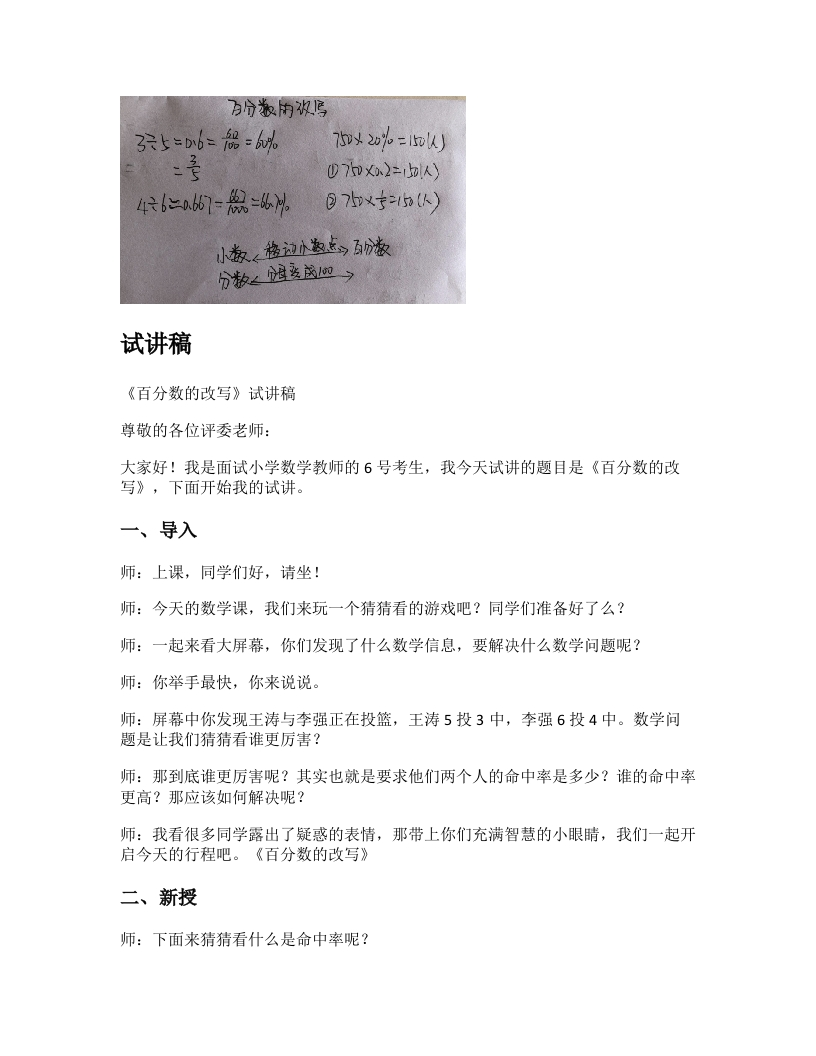 百分数的改写
3÷5=0.6=60/100=60%
=3/5
4÷6≈0.667=667/1000=66.7%
750×20%=150(人)
①750×0.2=150(人)
②750×1/5=150(人)
小数 移动小数点 百分数
分数 分母变成100
试讲稿
《百分数的改写》试讲稿
尊敬的各位评委老师：
大家好！我是面试小学数学教师的 6 号考生，我今天试讲的题目是《百分数的改
写》，下面开始我的试讲。
一、导入
师：上课，同学们好，请坐！
师：今天的数学课，我们来玩一个猜猜看的游戏吧？同学们准备好了么？
师：一起来看大屏幕，你们发现了什么数学信息，要解决什么数学问题呢？
师：你举手最快，你来说说。
师：屏幕中你发现王涛与李强正在投篮，王涛 5 投 3 中，李强 6 投 4 中。数学问
题是让我们猜猜看谁更厉害？
师：那到底谁更厉害呢？其实也就是要求他们两个人的命中率是多少？谁的命中率
更高？那应该如何解决呢？
师：我看很多同学露出了疑惑的表情，那带上你们充满智慧的小眼睛，我们一起开
启今天的行程吧。《百分数的改写》
二、新授
师：下面来猜猜看什么是命中率呢？